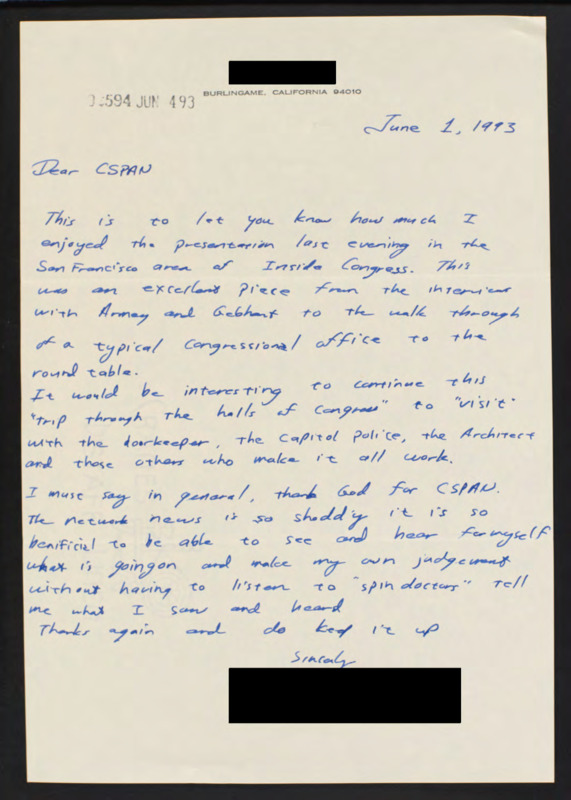 BURLINGAME, CALIFORNIA 94010
594 JUN 493
June 1, 1993
Dear CSPAN
This is to let you know how much I
enjoyed the presentation last evening in the
San Francisco area of Inside Congress. This
was an excellent piece from the interview
with Armey and Gebhart to the walk through
of a typical congressional office to the
round table.
It would be interesting to continue this
"trip through the halls of congress" to "visit"
with the doorkeeper, the Capitol Police, the Architect
and those others who make it all work.
I must say in general, thank God for CSPAN.
The network news is so shoddy it is so
benificial to be able to see and hear for myself
what is going on and make my own judgement
without having to listen to "spin doctors" tell
me what I saw and heard
Thanks again and do keep it up
Sincerely